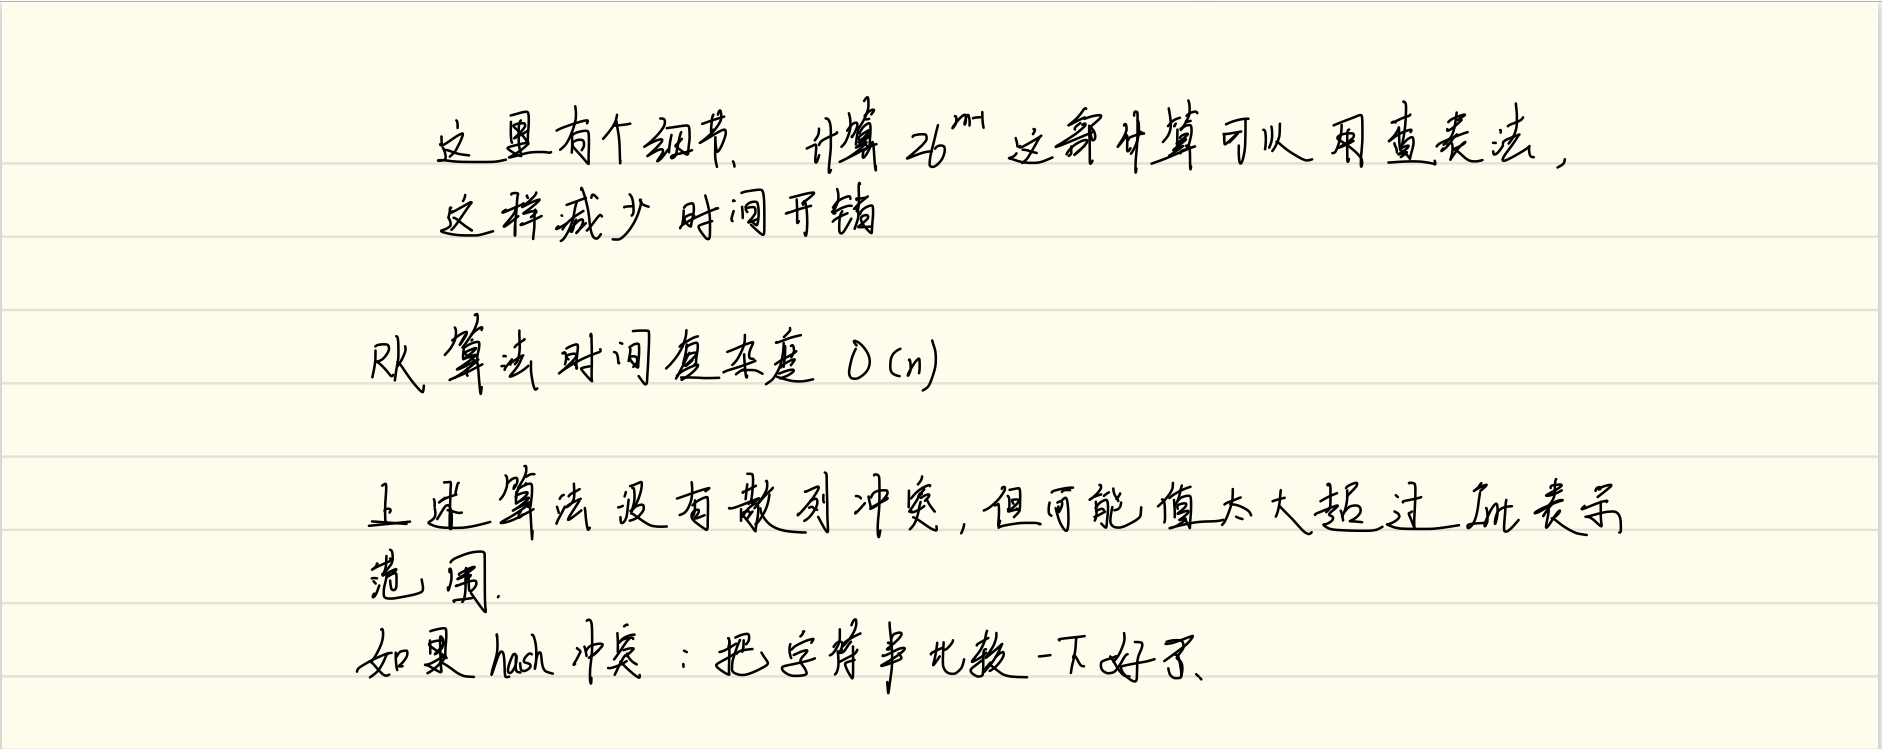 这里有个细节、计算 26^{m-1} 这部计算可以用查表法,
这样减少时间开销
RK 算法时间复杂度 O(n)
上述算法没有散列冲突,但可能值太大超过 Int 表示
范围.
如果 hash 冲突:把字符串比较一下好了、